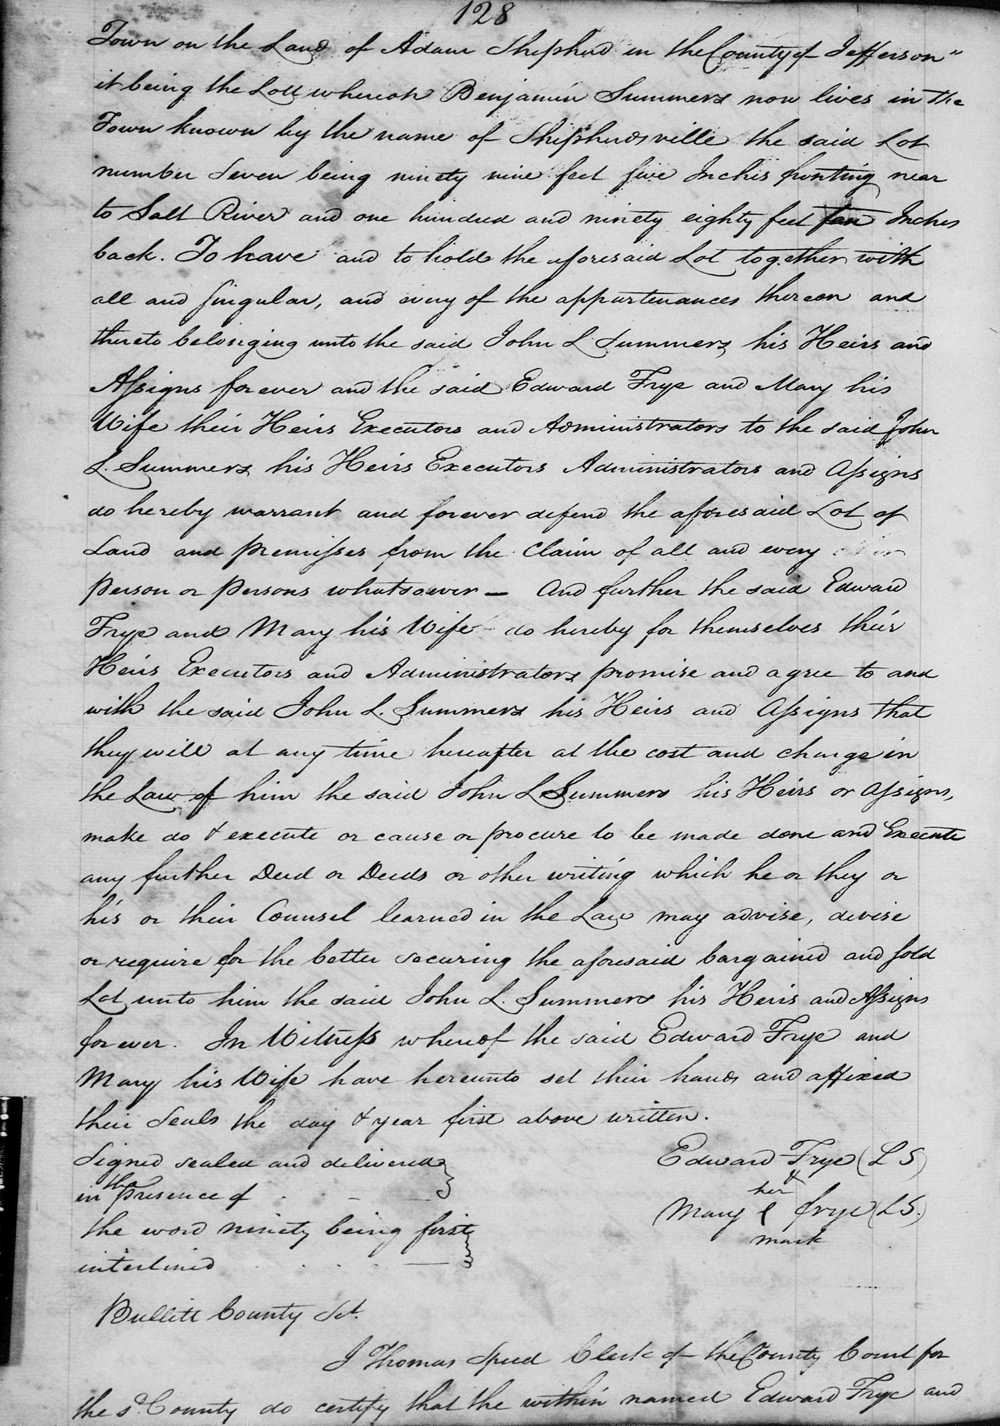 128
Town on the Land of Adam Shepherd in the County of Jefferson"
it being the Lott whereon Benjamin Summers now lives in the
Town known by the name of Shepherdsville the said Lot
number Seven being ninety nine feet five Inches fronting near
to Salt River and one hundred and ninety eighty feet Inches
back. To have and to hold the aforesaid Lot together with
all and singular, and every of the appurtenances thereon and
thereto belonging unto the said John L Summers his Heirs and
Assigns forever and the said Edward Frye and Mary his
Wife their Heirs Executors and Administrators to the said John
L. Summers his Heirs Executors Administrators and Assigns
do hereby warrant and forever defend the aforesaid Lot of
Land and premisses from the Claim of all and every
person or persons whatsoever — And further the said Edward
Frye and Mary his Wife do hereby for themselves their
Heirs Executors and Administrators promise and agree to and
with the said John L. Summers his Heirs and Assigns that
they will at any time hereafter at the cost and charge in
the Law of him the said John L Summers his Heirs or Assigns,
make do & execute or cause or procure to be made done and Execute
any further Deed or Deeds or other writing which he or they or
his or their Counsel learned in the Law may advise, devise
or require for the better securing the aforesaid bargained and sold
Lot unto him the said John L. Summers his Heirs and Assigns
forever. In Witness whereof the said Edward Frye and
Mary his Wife have hereunto set their hands and affixed
their Seals the day & year first above written.
Signed sealed and delivered Edward Frye (LS)
in the presence of
her
Mary Frye (LS.)
mark
the word ninety being first
interlined
Bullitt County Sct.
I Thomas Speed Clerk of the County Court for
the sd. County do certify that the within named Edward Frye and